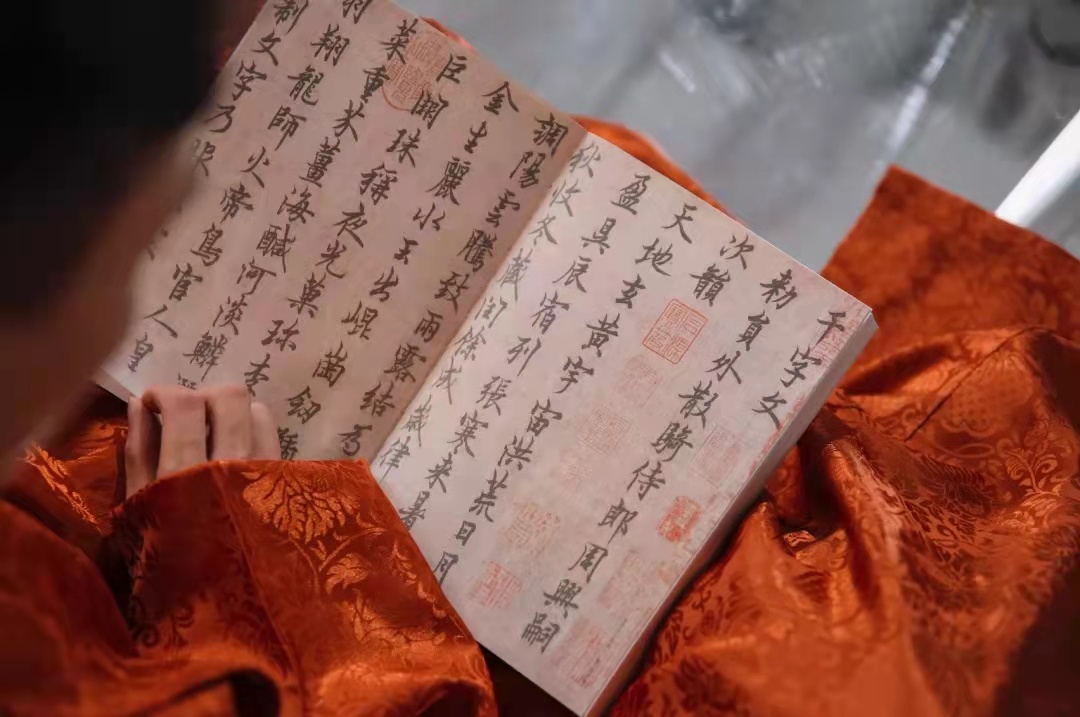 千字文
勅員外散騎侍郎周興嗣
次韻
天地玄黄宇宙洪荒日月
盈昃辰宿列張寒来暑
秋收冬蔵閏餘成歳律
調陽雲騰致雨露結為
金生麗水玉出崐崗劔號
巨闕珠稱夜光菓珍李
菜重芥薑海醎河淡鱗
羽翔龍師火帝鳥官人皇
制文字乃服